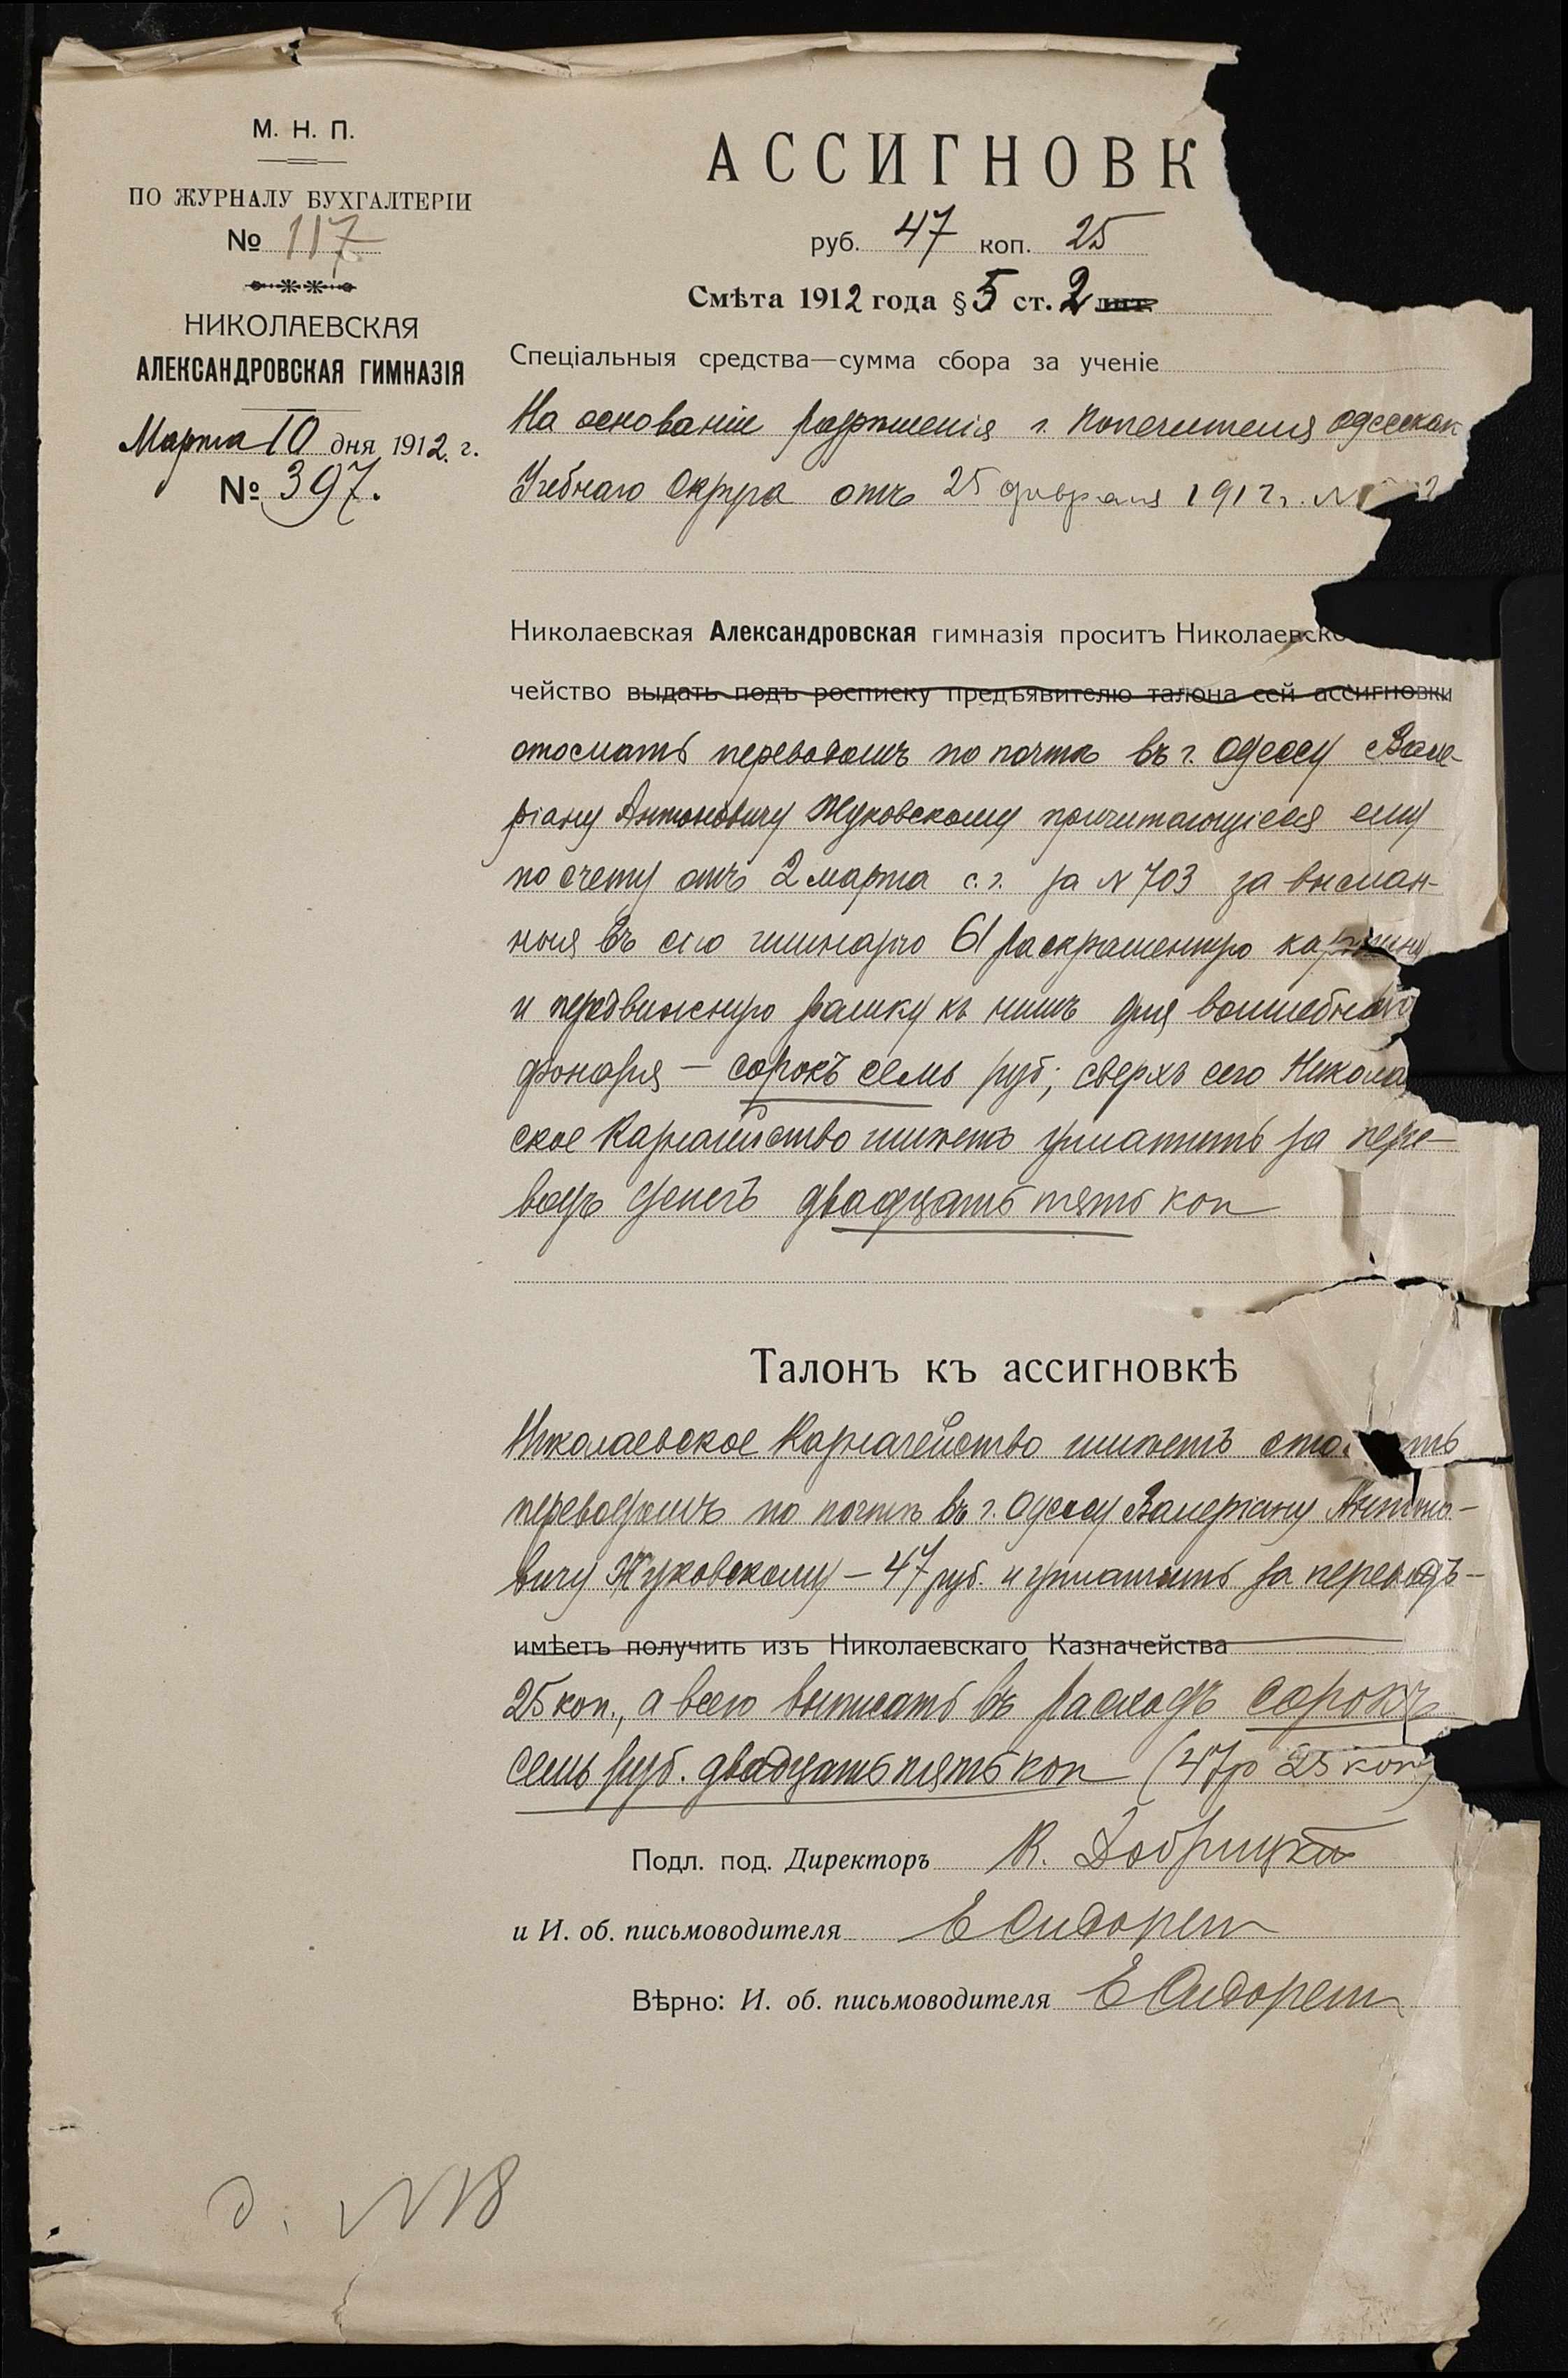 М. Н. П.
ПО ЖУРНАЛУ БУХГАЛТЕРІИ
№ 117
НИКОЛАЕВСКАЯ
АЛЕКСАНДРОВСКАЯ ГИМНАЗІЯ
Марта 10 дня 1912. г.
№ 397.
АССИГНОВК
руб. 47 коп. 25
Смѣта 1912 года § 5 ст. 2 лит.
Спеціальныя средства—сумма сбора за ученіе
На основаніи разрѣшенія г. Попечителя Одесскаго
Учебнаго Округа отъ 25 февраля 1912 г. №
Николаевская Александровская гимназія проситъ Николаевско
чейство выдать подъ росписку предъявителю талона сей ассигновки
отослать переводомъ по почтѣ въ г. Одессу Вале-
ріану Антоновичу Жуковскому причитающіеся ему
по счету отъ 2 марта с. г. за № 703 за выслан-
ныя въ сію гимназію 61 раскрашенную картину
и передвижную рамку къ нимъ для волшебнаго
фонаря — сорокъ семь руб; сверхъ сего Никола
ское Казначейство имѣетъ уплатить за пере-
водъ денегъ двадцать пять коп
Талонъ къ ассигновкѣ
Николаевское Казначейство имѣетъ ото ть
переводомъ по почтѣ въ г. Одессу Валеріану Антоно-
вичу Жуковскому — 47 руб. и уплатить за переводъ —
имѣетъ получить изъ Николаевскаго Казначейства
25 коп., а всего выписать въ расходъ сорокъ
семь руб. двадцать пять коп (47 р 25 коп)
Подл. под. Директоръ К. Добрицкій
и И. об. письмоводителя Е Сидорен
Вѣрно: И. об. письмоводителя Е Сидорен
д. № 18